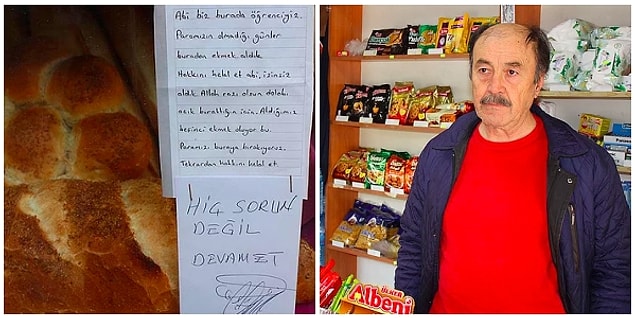 Abi biz burada öğrenciyiz.
Paramızın olmadığı günler
buradan ekmek aldık.
Hakkını helal et abi, izinsiz
aldık. Allah razı olsun dolabı
açık bıraktığın için. Aldığımız
beşinci ekmek oluyor bu.
Paramızı buraya bırakıyoruz.
Tekrardan Hakkını helal et.
HİÇ SORUN
DEĞİL
DEVAMET
ÜLKER
Albeni